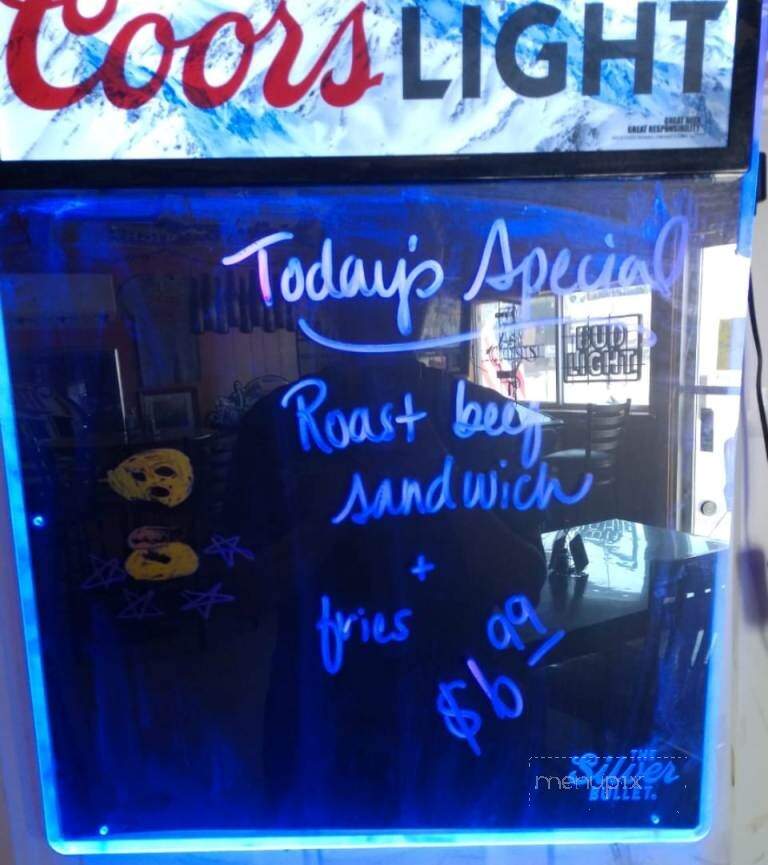 Coors LIGHT
GREAT BEER
GREAT RESPONSIBILITY
Today's Special
BUD
LIGHT
Roast beef
sandwich
+
fries
$6.99
THE
Silver
BULLET.
menupix